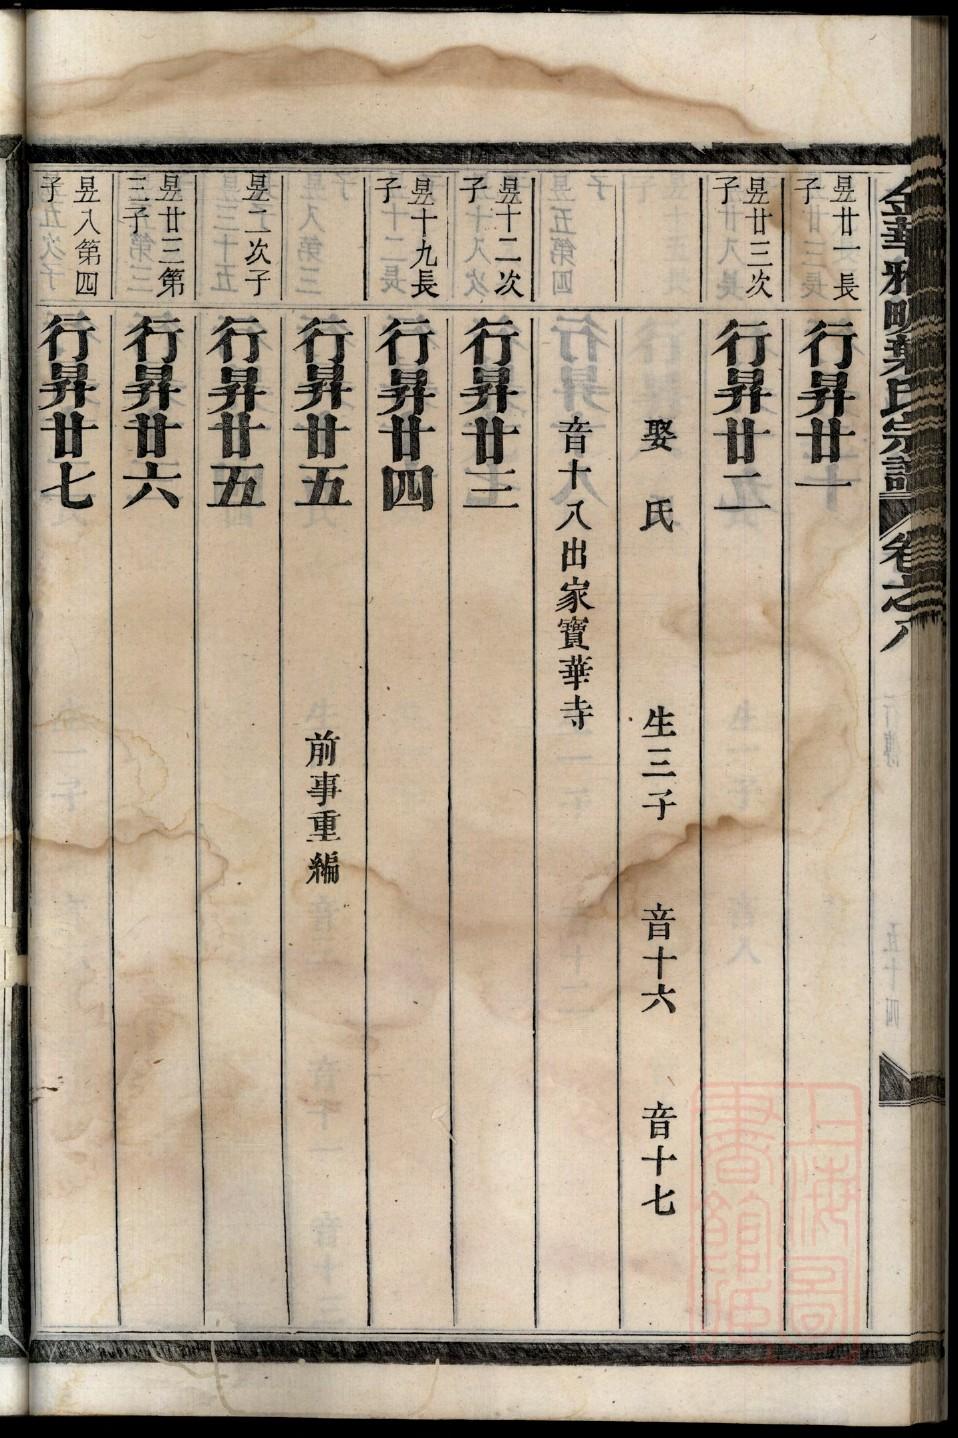 金華雅畈葉氏宗譜 卷之八
行傳 五十四
昱廿一長子 行昇廿一
昱廿三次子 行昇廿二
娶氏 生三子 音十六 音十七
音十八出家寶華寺
昱十二次子 行昇廿三
昱十九長子 行昇廿四
行昇廿五 前事重編
昱二次子 行昇廿五
昱廿三第三子 行昇廿六
昱八第四子 行昇廿七
上海圖書館藏